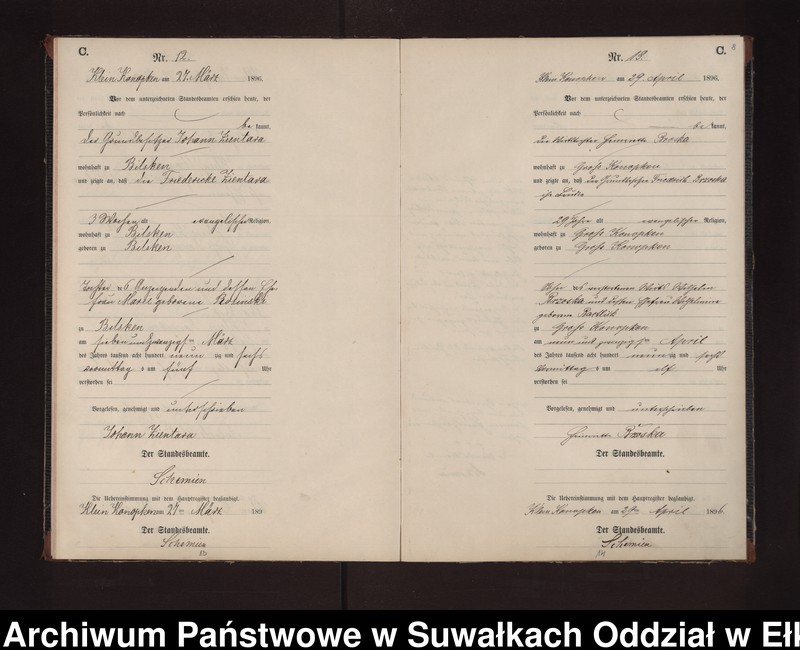 C.
Nr. 12.
Klein Konopken am 27. März 1896.
Vor dem unterzeichneten Standesbeamten erschien heute, der
Persönlichkeit nach
be kannt,
der Grundbesitzer Johann Zientara
wohnhaft zu Bilsken
und zeigte an, daß die Friedericke Zientara
3 Wochen alt evangelischer Religion,
wohnhaft zu Bilsken
geboren zu Bilsken
Tochter des Anzeigenden und dessen Ehe
frau Marie geborene
zu Bilsken
am sieben und zwanzigsten März
des Jahres tausend acht hundert neun zig und sechs
vormittag s um fünf Uhr
verstorben sei
Vorgelesen, genehmigt und unterschrieben
Johann Zientara
Der Standesbeamte.
Schemien
Die Uebereinstimmung mit dem Hauptregister beglaubigt.
Klein Konopken am 27ten März 189
Der Standesbeamte.
Schemien
C.
Nr. 13.
Klein Konopken am 29. April 1896.
Vor dem unterzeichneten Standesbeamten erschien heute, der
Persönlichkeit nach
be kannt,
die Henriette Brzoska
wohnhaft zu Groß Konopken
und zeigte an, daß der Friedrich Brzoska
ihr Bruder
29 Jahre alt evangelischer Religion,
wohnhaft zu Groß Konopken
geboren zu Groß Konopken
Sohn des verstorbenen Wirth
Brzoska und dessen Ehefrau
geborene
zu Groß Konopken
am neun und zwanzigsten April
des Jahres tausend acht hundert neun zig und sechs
Vormittag s um elf Uhr
verstorben sei
Vorgelesen, genehmigt und unterschrieben
Henriette Brzoska
Der Standesbeamte.
Die Uebereinstimmung mit dem Hauptregister beglaubigt.
Klein Konopken am 29ten April 1896
Der Standesbeamte.
Schemien
Archiwum Państwowe w Suwałkach Oddział w Ełk